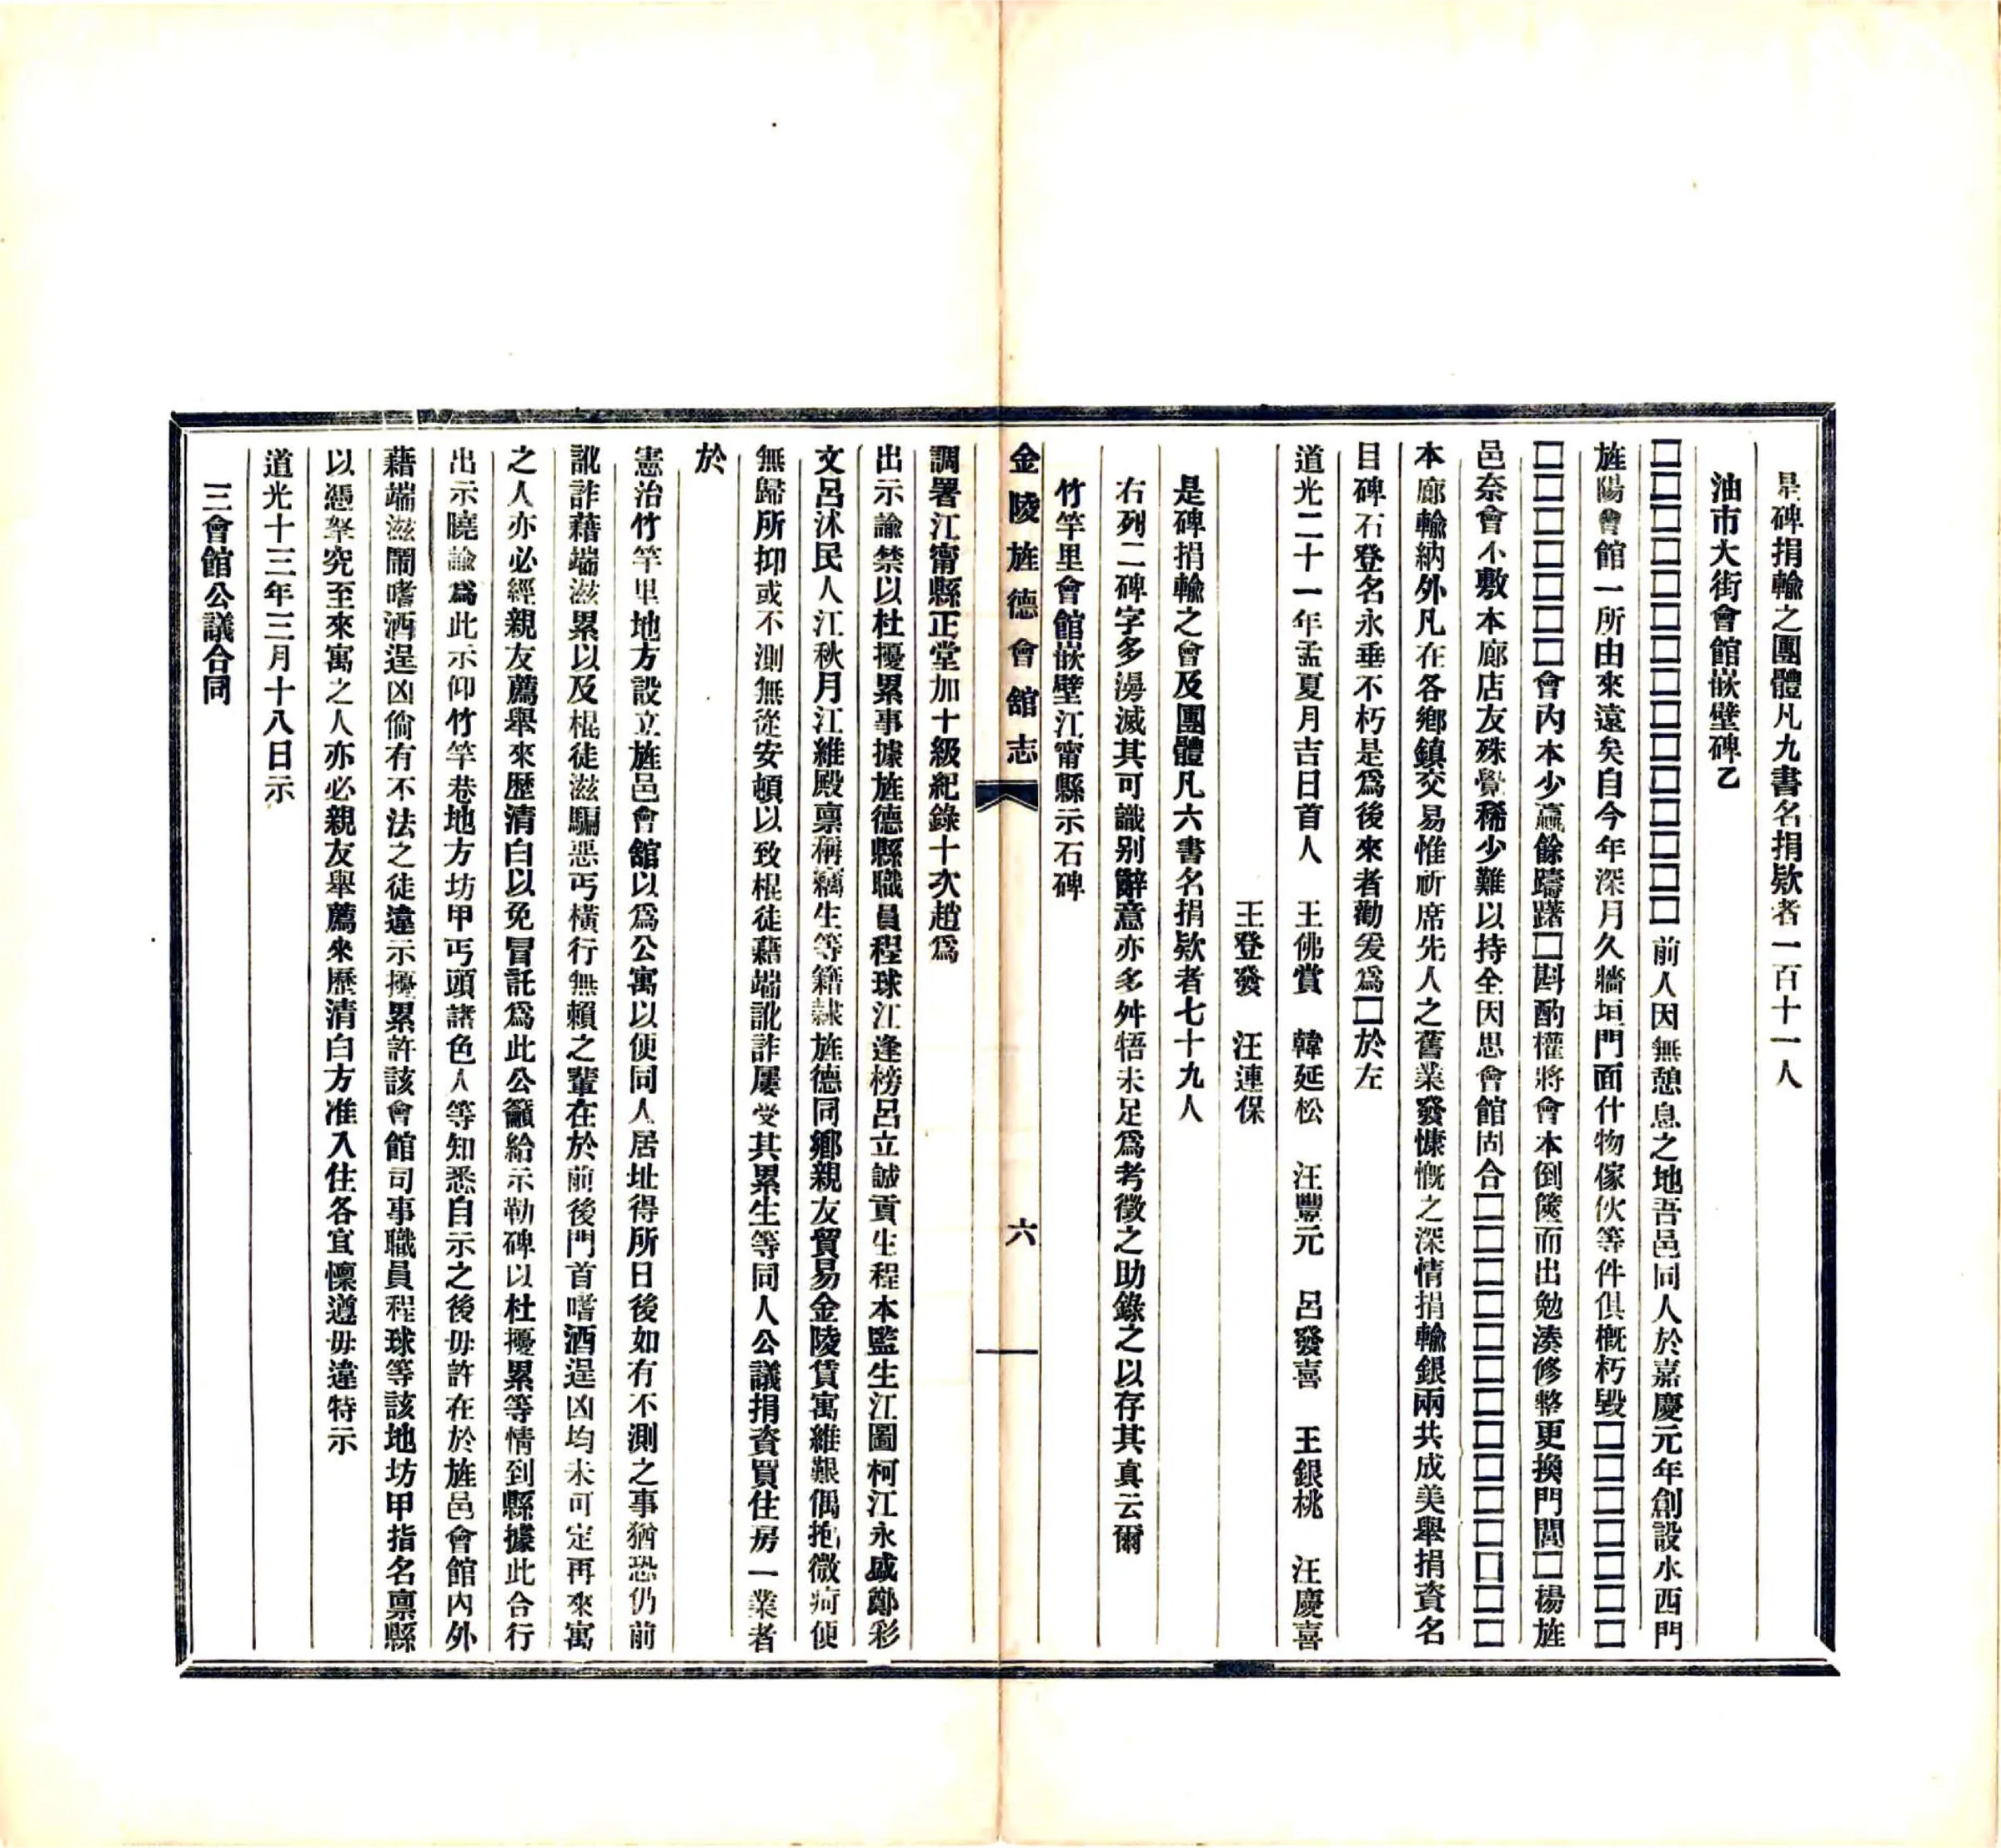 是碑捐輸之團體凡九書名捐欵者一百十一人
油市大街會館嵌壁碑乙
□□□□□□□□□□□□□□□前人因無憩息之地吾邑同人於嘉慶元年創設水西門
旌陽會館一所由來遠矣自今年深月久牆垣門面什物傢伙等件俱概朽毀□□□□□□□
□□□□□□□會內本少贏餘躊躇□斟酌權將會本倒篋而出勉湊修整更換門閭□楊旌
邑奈會不敷本廊店友殊覺稀少難以持全因思會館固合□□□□□□□□□□□□□□
本廊輸納外凡在各鄉鎮交易惟祈席先人之舊業發慷慨之深情捐輸銀兩共成美舉捐資名
目碑石登名永垂不朽是爲後來者勸爰爲□於左
道光二十一年孟夏月吉日首人　王佛賞　韓延松　汪豐元　呂發喜　王銀桃　汪慶喜
王登發　汪連保
是碑捐輸之會及團體凡六書名捐欵者七十九人
右列二碑字多漫滅其可識别辭意亦多舛牾未足爲考徵之助錄之以存其真云爾
竹竿里會館嵌壁江甯縣示石碑
金陵旌德會館志
六
調署江甯縣正堂加十級紀錄十次趙爲
出示諭禁以杜擾累事據旌德縣職員程球江逢榜呂立誠貢生程本監生江圖柯江永盛鄭彩
文呂沐民人江秋月江維殿禀稱竊生等籍隸旌德同鄉親友貿易金陵賃寓維艱偶抱微疴便
無歸所抑或不測無從安頓以致棍徒藉端訛詐屢受其累生等同人公議捐資買住房一業者
於
憲治竹竿里地方設立旌邑會舘以爲公寓以便同人居址得所日後如有不測之事猶恐仍前
訛詐藉端滋累以及棍徒滋騙惡丐橫行無賴之輩在於前後門首嗜酒逞凶均未可定再來寓
之人亦必經親友薦舉來歷清白以免冒託爲此公籲給示勒碑以杜擾累等情到縣據此合行
出示曉諭爲此示仰竹竿巷地方坊甲丐頭諸色人等知悉自示之後毋許在於旌邑會館內外
藉端滋鬧嗜酒逞凶倘有不法之徒違示擾累許該會館司事職員程球等該地坊甲指名禀縣
以憑拏究至來寓之人亦必親友舉薦來歷清白方准入住各宜懍遵毋違特示
道光十三年三月十八日示
三會館公議合同